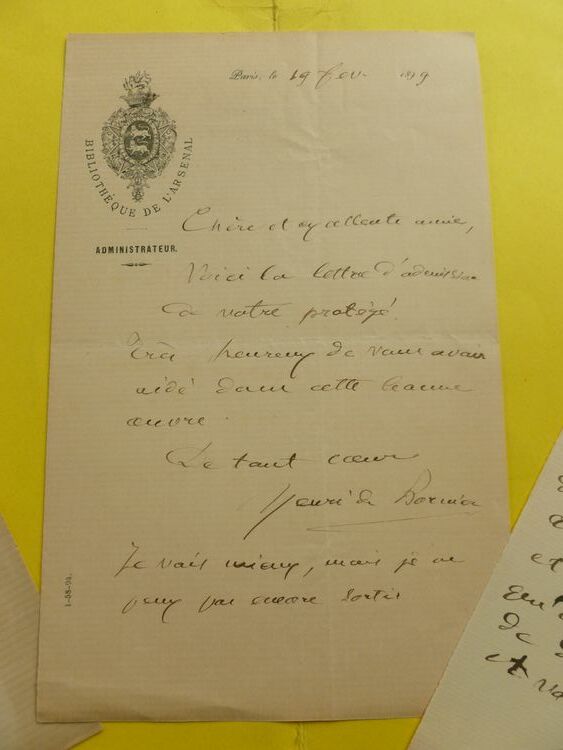 Paris, le 19 fev. 1899
BIBLIOTHÈQUE DE L'ARSENAL
ADMINISTRATEUR.
Chère et excellente amie,
Voici la lettre d'admission
de votre protégé.
Très heureux de vous avoir
aidé dans cette bonne
œuvre.
De tout cœur
Henri de Bornier
Je vais mieux, mais je ne
peux pas encore sortir
et
de
et